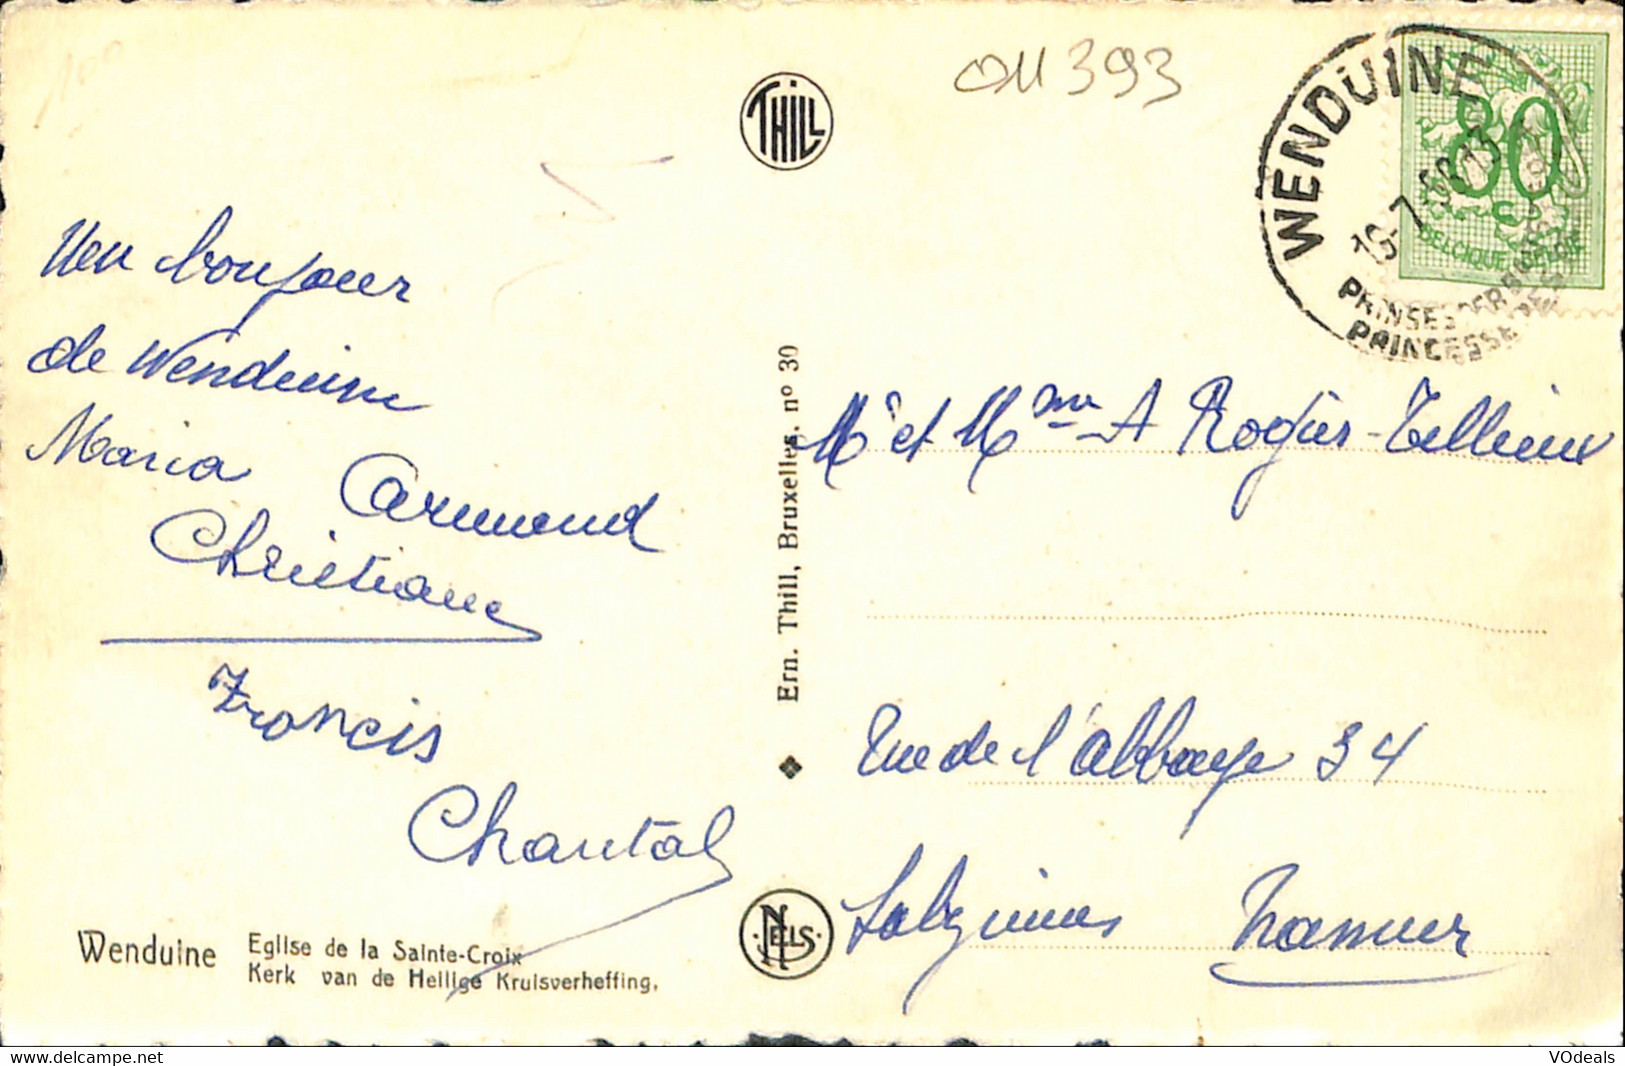 OM 393
THILL
WENDUINE
16-7-58-13
PRINSES DER
PRINCESSE
80
BELGIQUE BELGIE
Un bonjour
de Wenduine
Maria Armand
Christiane
Francis
Chantal
Mr et Mme A Rogier-Tellieux
Rue de l'abbaye 34
Salzinnes Namur
Ern. Thill, Bruxelles. nº 30
NELS
Wenduine Eglise de la Sainte-Croix
Kerk van de Heilige Kruisverheffing.
www.delcampe.net
VOdeals